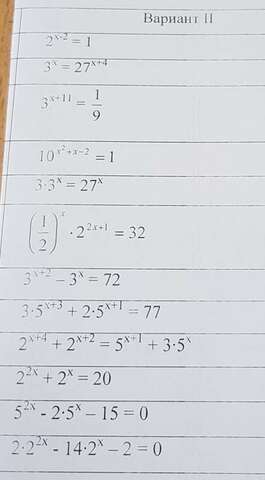 Вариант II
2^{x-2} = 1
3^x = 27^{x+4}
3^{x+11} = \frac{1}{9}
10^{x^2+x-2} = 1
3·3^x = 27^x
(\frac{1}{2})^x · 2^{2x+1} = 32
3^{x+2} – 3^x = 72
3·5^{x+3} + 2·5^{x+1} = 77
2^{x+4} + 2^{x+2} = 5^{x+1} + 3·5^x
2^{2x} + 2^x = 20
5^{2x} - 2·5^x – 15 = 0
2·2^{2x} - 14·2^x – 2 = 0